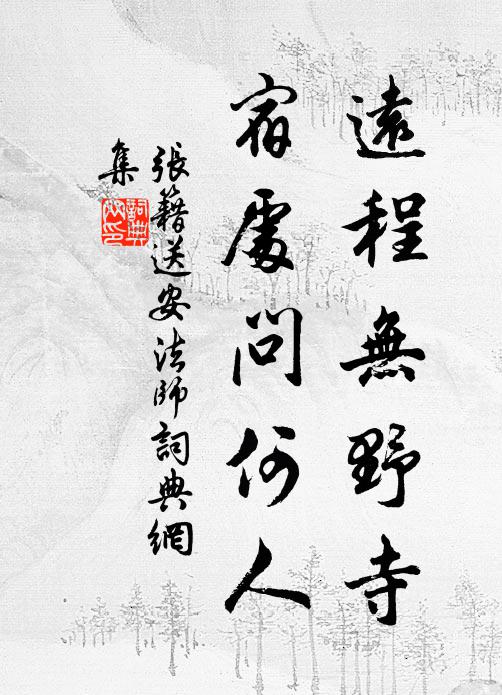 遠程無野寺
宿處問何人
張籍送安法師詞典網
集
詞典網印